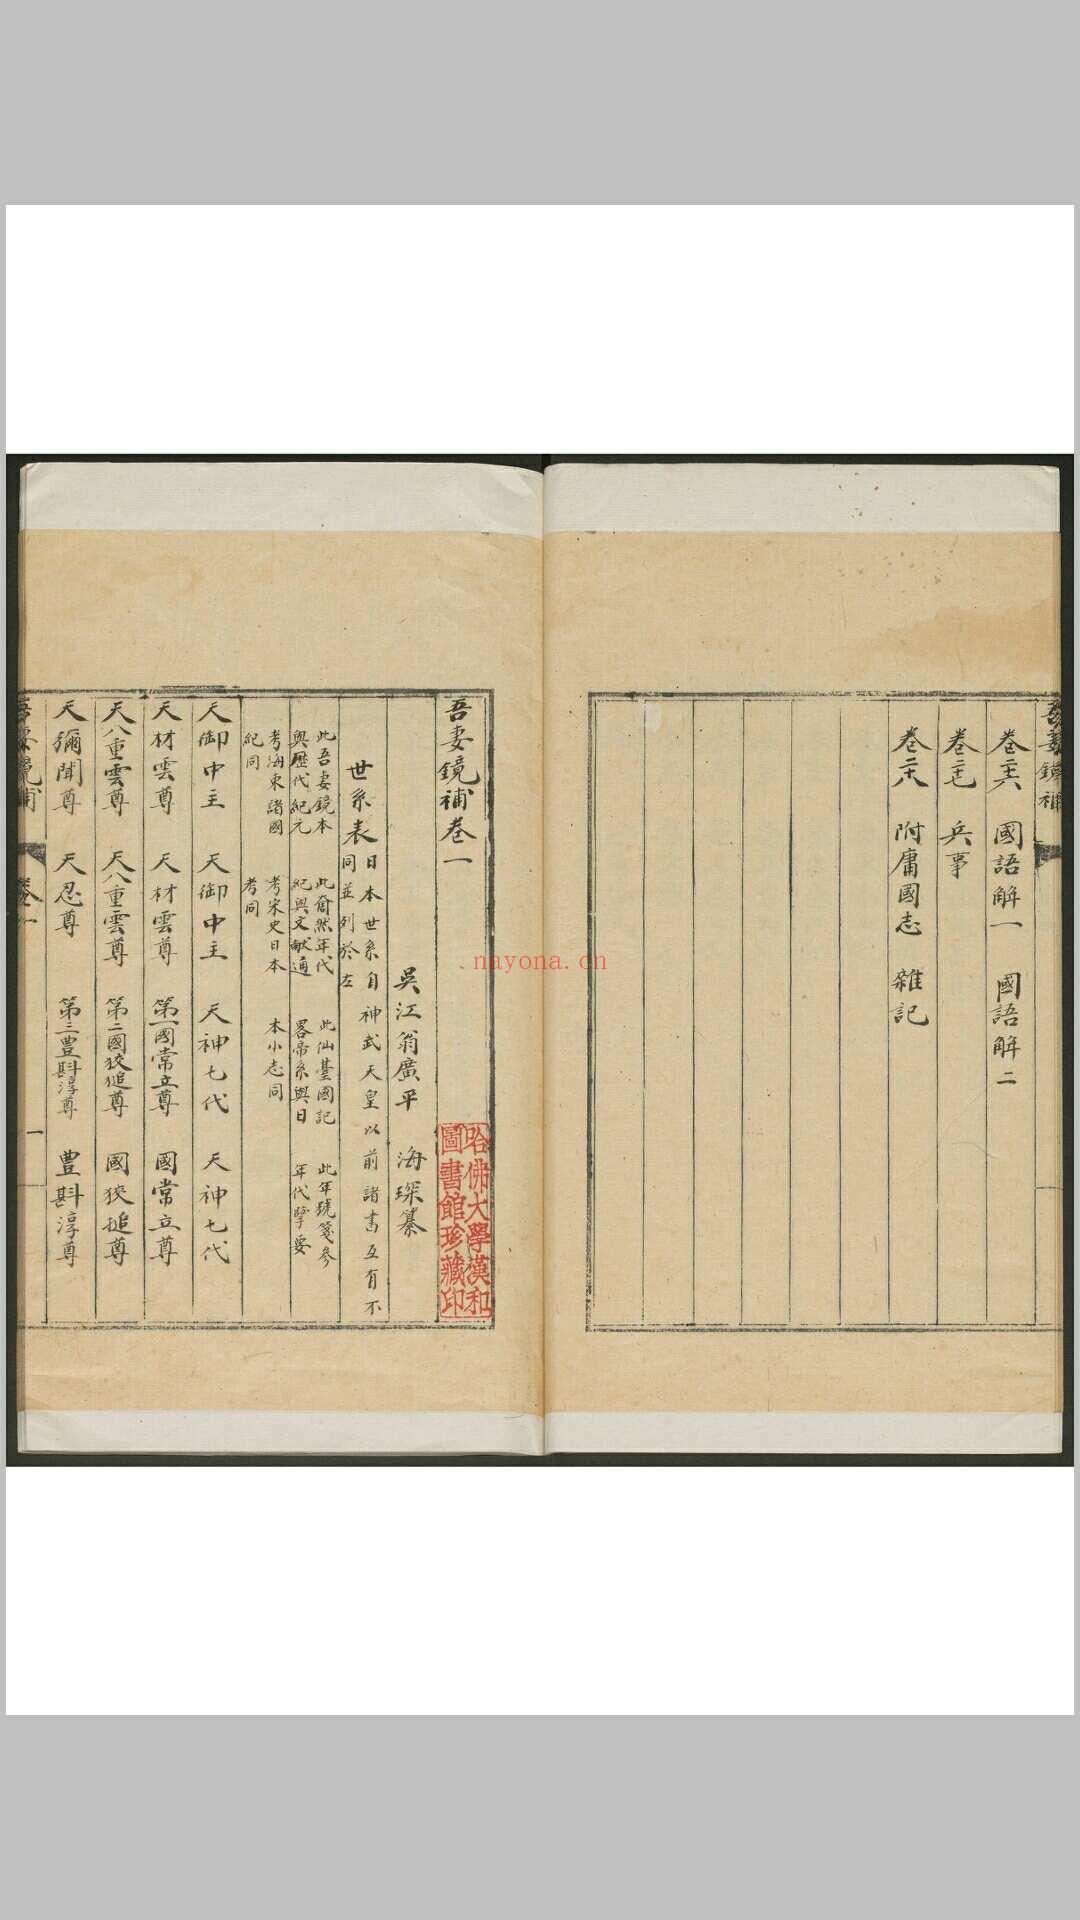 吾妻鏡補
卷二十六　國語解一　國語解二
卷二十七　兵事
卷二十八　附庸國志　雜記
吾妻鏡補卷一
吳江翁廣平　海琛纂
世系表
日本世系自神武天皇以前諸書互有不
同並列於左
此吾妻鏡本
與歷代紀元
考海東諸國
紀同
此奝然年代
紀與文獻通
考宋史日本
考同
此仙臺國記
畧帝系與日
本小志同
此年號箋參
年代擥要
天御中主　天御中主　天神七代　天神七代
天材雲尊　天材雲尊　第一國常立尊　國常立尊
天八重雲尊　天八重雲尊　第二國狹槌尊　國狹槌尊
天彌聞尊　天忍尊　第三豊斟渟尊　豊斟渟尊
吾妻鏡補　卷一　一
哈佛大學漢和
圖書館珍藏印
nayona.cn